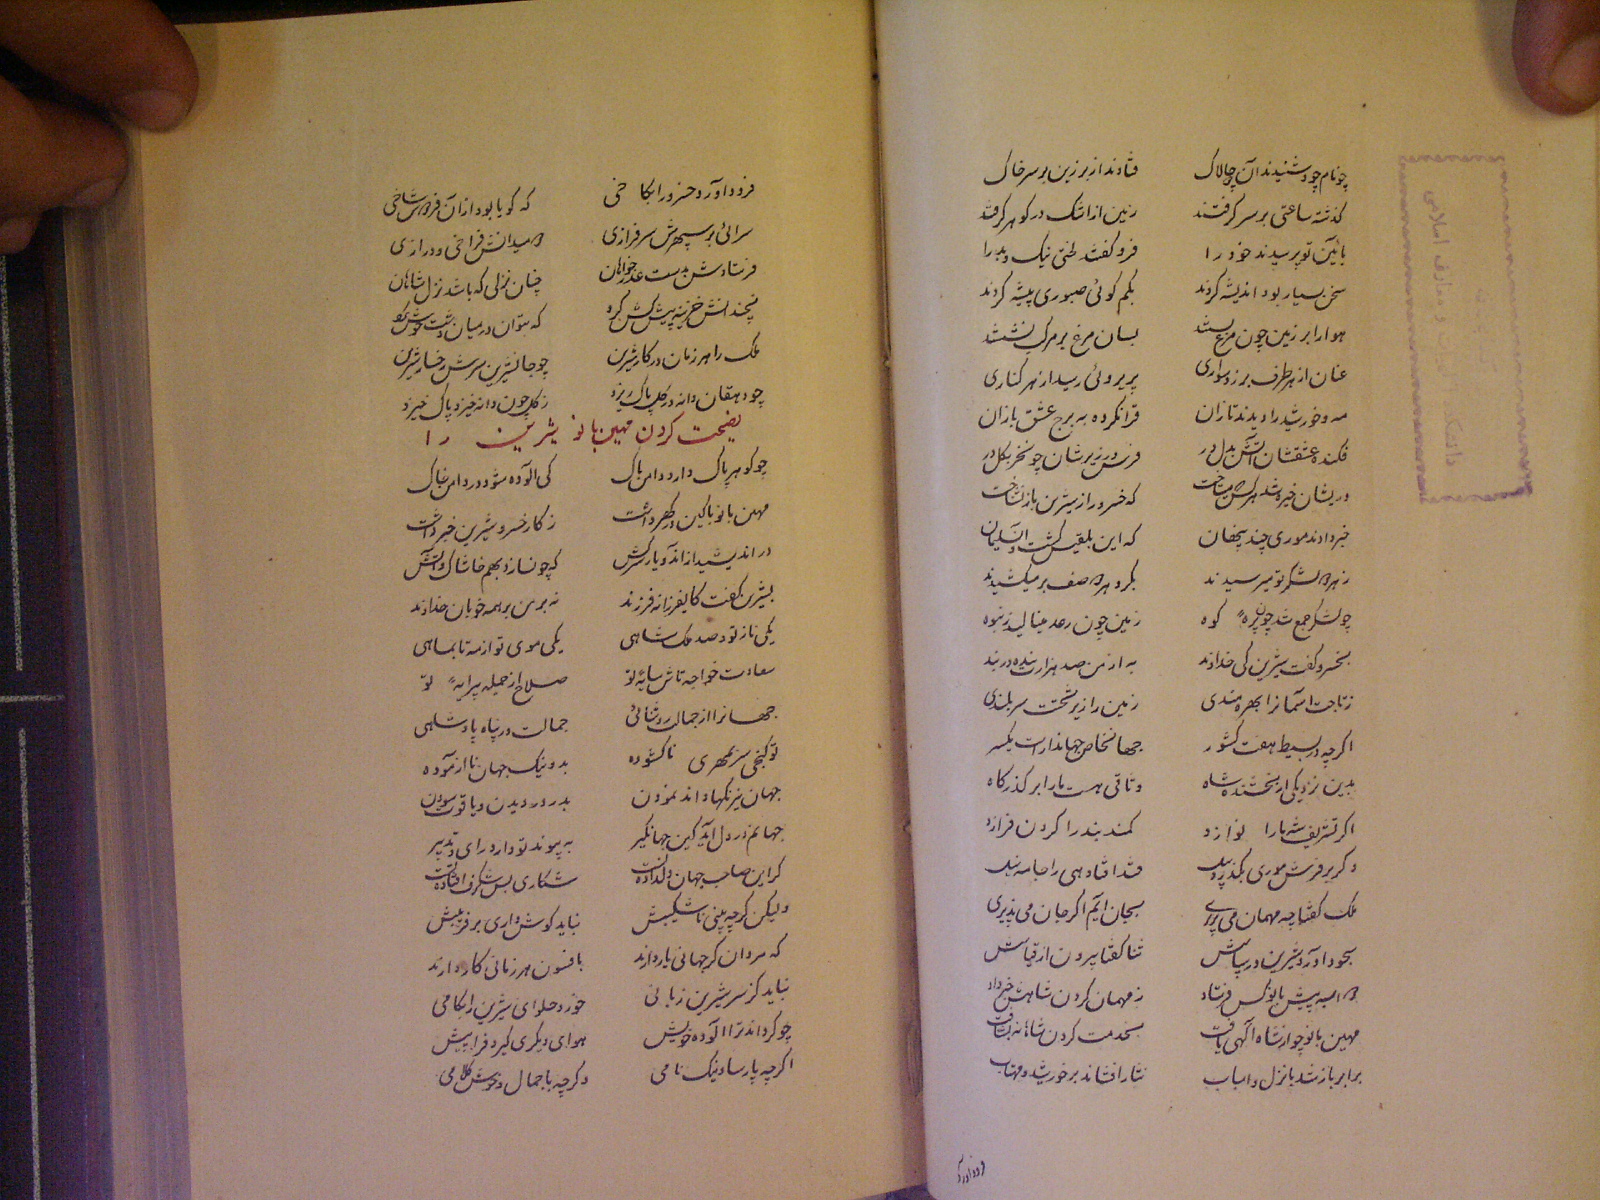 چو نام خود شنیدند آن دو چالاک
فتادند از بر زین بر سر خاک
گذشته ساعتی بر سر گرفتند
زمین از اشک در گوهر گرفتند
بائین تو پرسیدند خود را
فرو گفتند لختی نیک و بد را
سخن بسیار بود اندیشه کردند
بکم گوئی صبوری پیشه کردند
هوا را بر زمین چون مرغ بستند
بسان مرغ بر مرکب نشستند
عنان از هر طرف بر زد سواری
پریروئی رسید از هر کناری
مه و خورشید را دیدند تازان
قران کرده به برج عشق بازان
فکنده عشقشان آتش بدل در
فرس در زیرشان چون خر بگل در
دریشان خیره شد هرکس که میتاخت
که خسرو را ز شیرین باز نشناخت
خبر دادند موری چند پنهان
که این بلقیس گشت و آن سلیمان
ز هر سو لشکر تو میرسیدند
بگرد هر دو صف بر میکشیدند
چو لشکر جمع شد چون پره کوه
زمین چون رعد مینالید ز انبوه
بخسرو گفت شیرین کی خداوند
به از من صد هزارت بنده در بند
ز تاجت آسمانرا بهره مندی
زمین را زیر تختت سربلندی
اگر چه در بسیط هفت کشور
جهان خاص جهاندارست یکسر
بدین نزدیکی از بخشنده شاه
وثاقی هست ما را بر گذرگاه
اگر تشریف شه ما را نوازد
کمند بند را گردن فرازد
و گر بر فرش موری بگذرد پیل
فتد افتاده یی را جامه در نیل
ملک گفتا چه مهمان می پذیری
بجان آیم اگر جان می پذیری
سجود آورد شیرین در سپاسش
ثنا گفتا برون از قیاسش
دو اسبه پیش بانو کس فرستاد
ز مهمان کردن شاهش خبر داد
مهین بانو چو از شاه آگهی یافت
بخدمت کردن شاهانه بشتافت
برابر باز شد با نزل و اسباب
نثار افشاند بر خورشید و مهتاب
فرود آورد
فرود آورد خسرو را بکاخی
که گویا بود از آن فردوس شاخی
سرائی بر سپهرش سرفرازی
دو میدانش فراخی و درازی
فرستادش بدست عذرخواهان
چنان نزلی که باشد نزل شاهان
نچندانش خزینه پیشکش کرد
که بتوان در میان دشت خوش کرد
ملک را هر زمان در کار شیرین
چو جان شیرین سرش رخسار شیرین
چو دهقان دانه در گل پاک ریزد
ز گل چون دانه خیزد پاک خیزد
نصیحت کردن مهین بانو شیرین را
چو گوهر پاک دارد دامن پاک
کی آلوده شود در دامن خاک
مهین بانو پاکین در گهر داشت
ز کار خسرو شیرین خبر داشت
در اندیشید از اندو یار سرکش
که چون سازد بهم خاشاک و آتش
بشیرین گفت کای فرزانه فرزند
نه بر من بر همه خوبان خداوند
یکی ناز تو و صد ملک شاهی
یکی موی تو از مه تا بماهی
سعادت خواجه تاش سایه تو
صلاح از جمله پیرایه تو
جهانرا از جمالت روشنائی
جمالت در پناه پادشاهی
تو گنجی سر بمهری ناگشوده
بد و نیک جهان نا آزموده
جهان نیرنگها داند نمودن
بدر دزدیدن و یاقوت سودن
چنانم در دل آید کین جهانگیر
به پیوند تو دارد رای و تدبیر
گر این صاحب جهان دلداده تست
شکاری بس شگرف افتاده تست
ولیکن گر چه بینی ناشکیبش
نباید گوش داری بر فریبش
که مردان گر جهانی یار دارند
بافسون هر زمانی کار دارند
نباید کز سر شیرین زبانی
خورد حلوای شیرین رایگانی
چو گرداند ترا آلوده خویش
هوای دیگری گیرد فرا پیش
اگر چه پارسا و نیک نامی
و گر چه با جمال و خوش کلامی